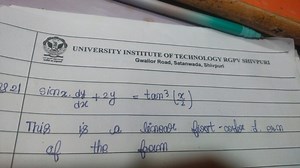 UNIVERSITY INSTITUTE OF TECHNOLOGY RGPV SHIVPURI
Gwalior Road, Satanwada, Shivpuri
sinx dy/dx + 2y = tan³(x/2)
This is a linear first-order d
of the from